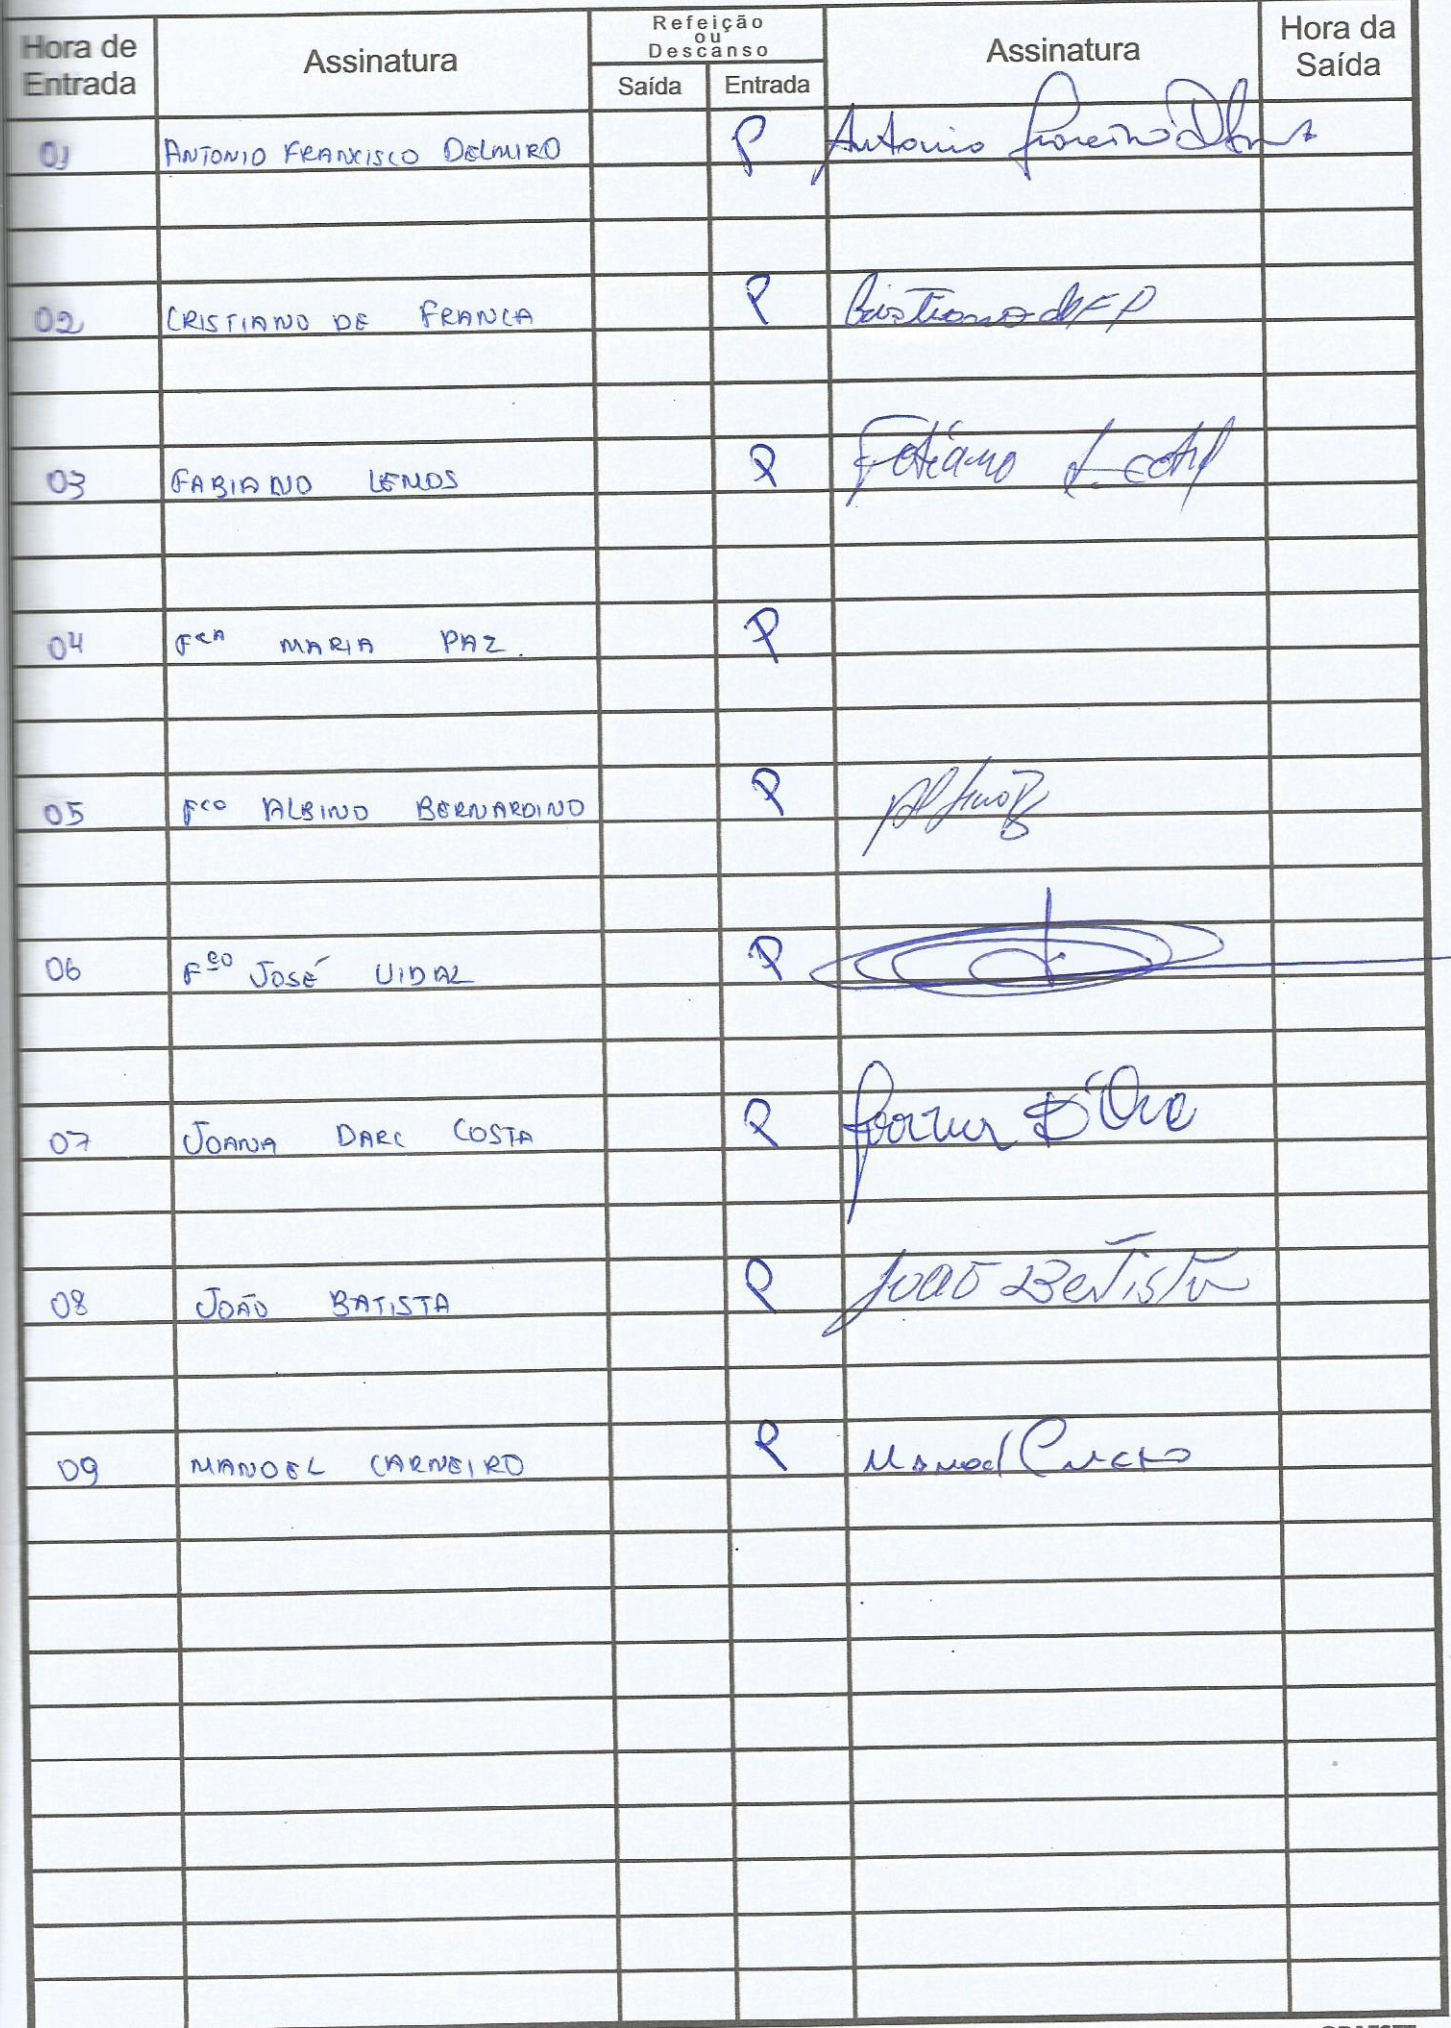 Hora de Entrada Assinatura Refeição ou Descanso Saída Entrada Assinatura Hora da Saída
01 ANTONIO FRANCISCO DELMIRO P Antonio
02 CRISTIANO DE FRANCA P Cristiano de F P
03 FABIANO LEMOS P Fabiano
04 Fca MARIA PAZ. P
05 Fco ALBINO BERNARDINO P
06 Fco JOSÉ VIDAL P
07 JOANA DARC COSTA P Joana D'arc
08 JOÃO BATISTA P João Batista
09 MANOEL CARNEIRO P Manoel Carneiro